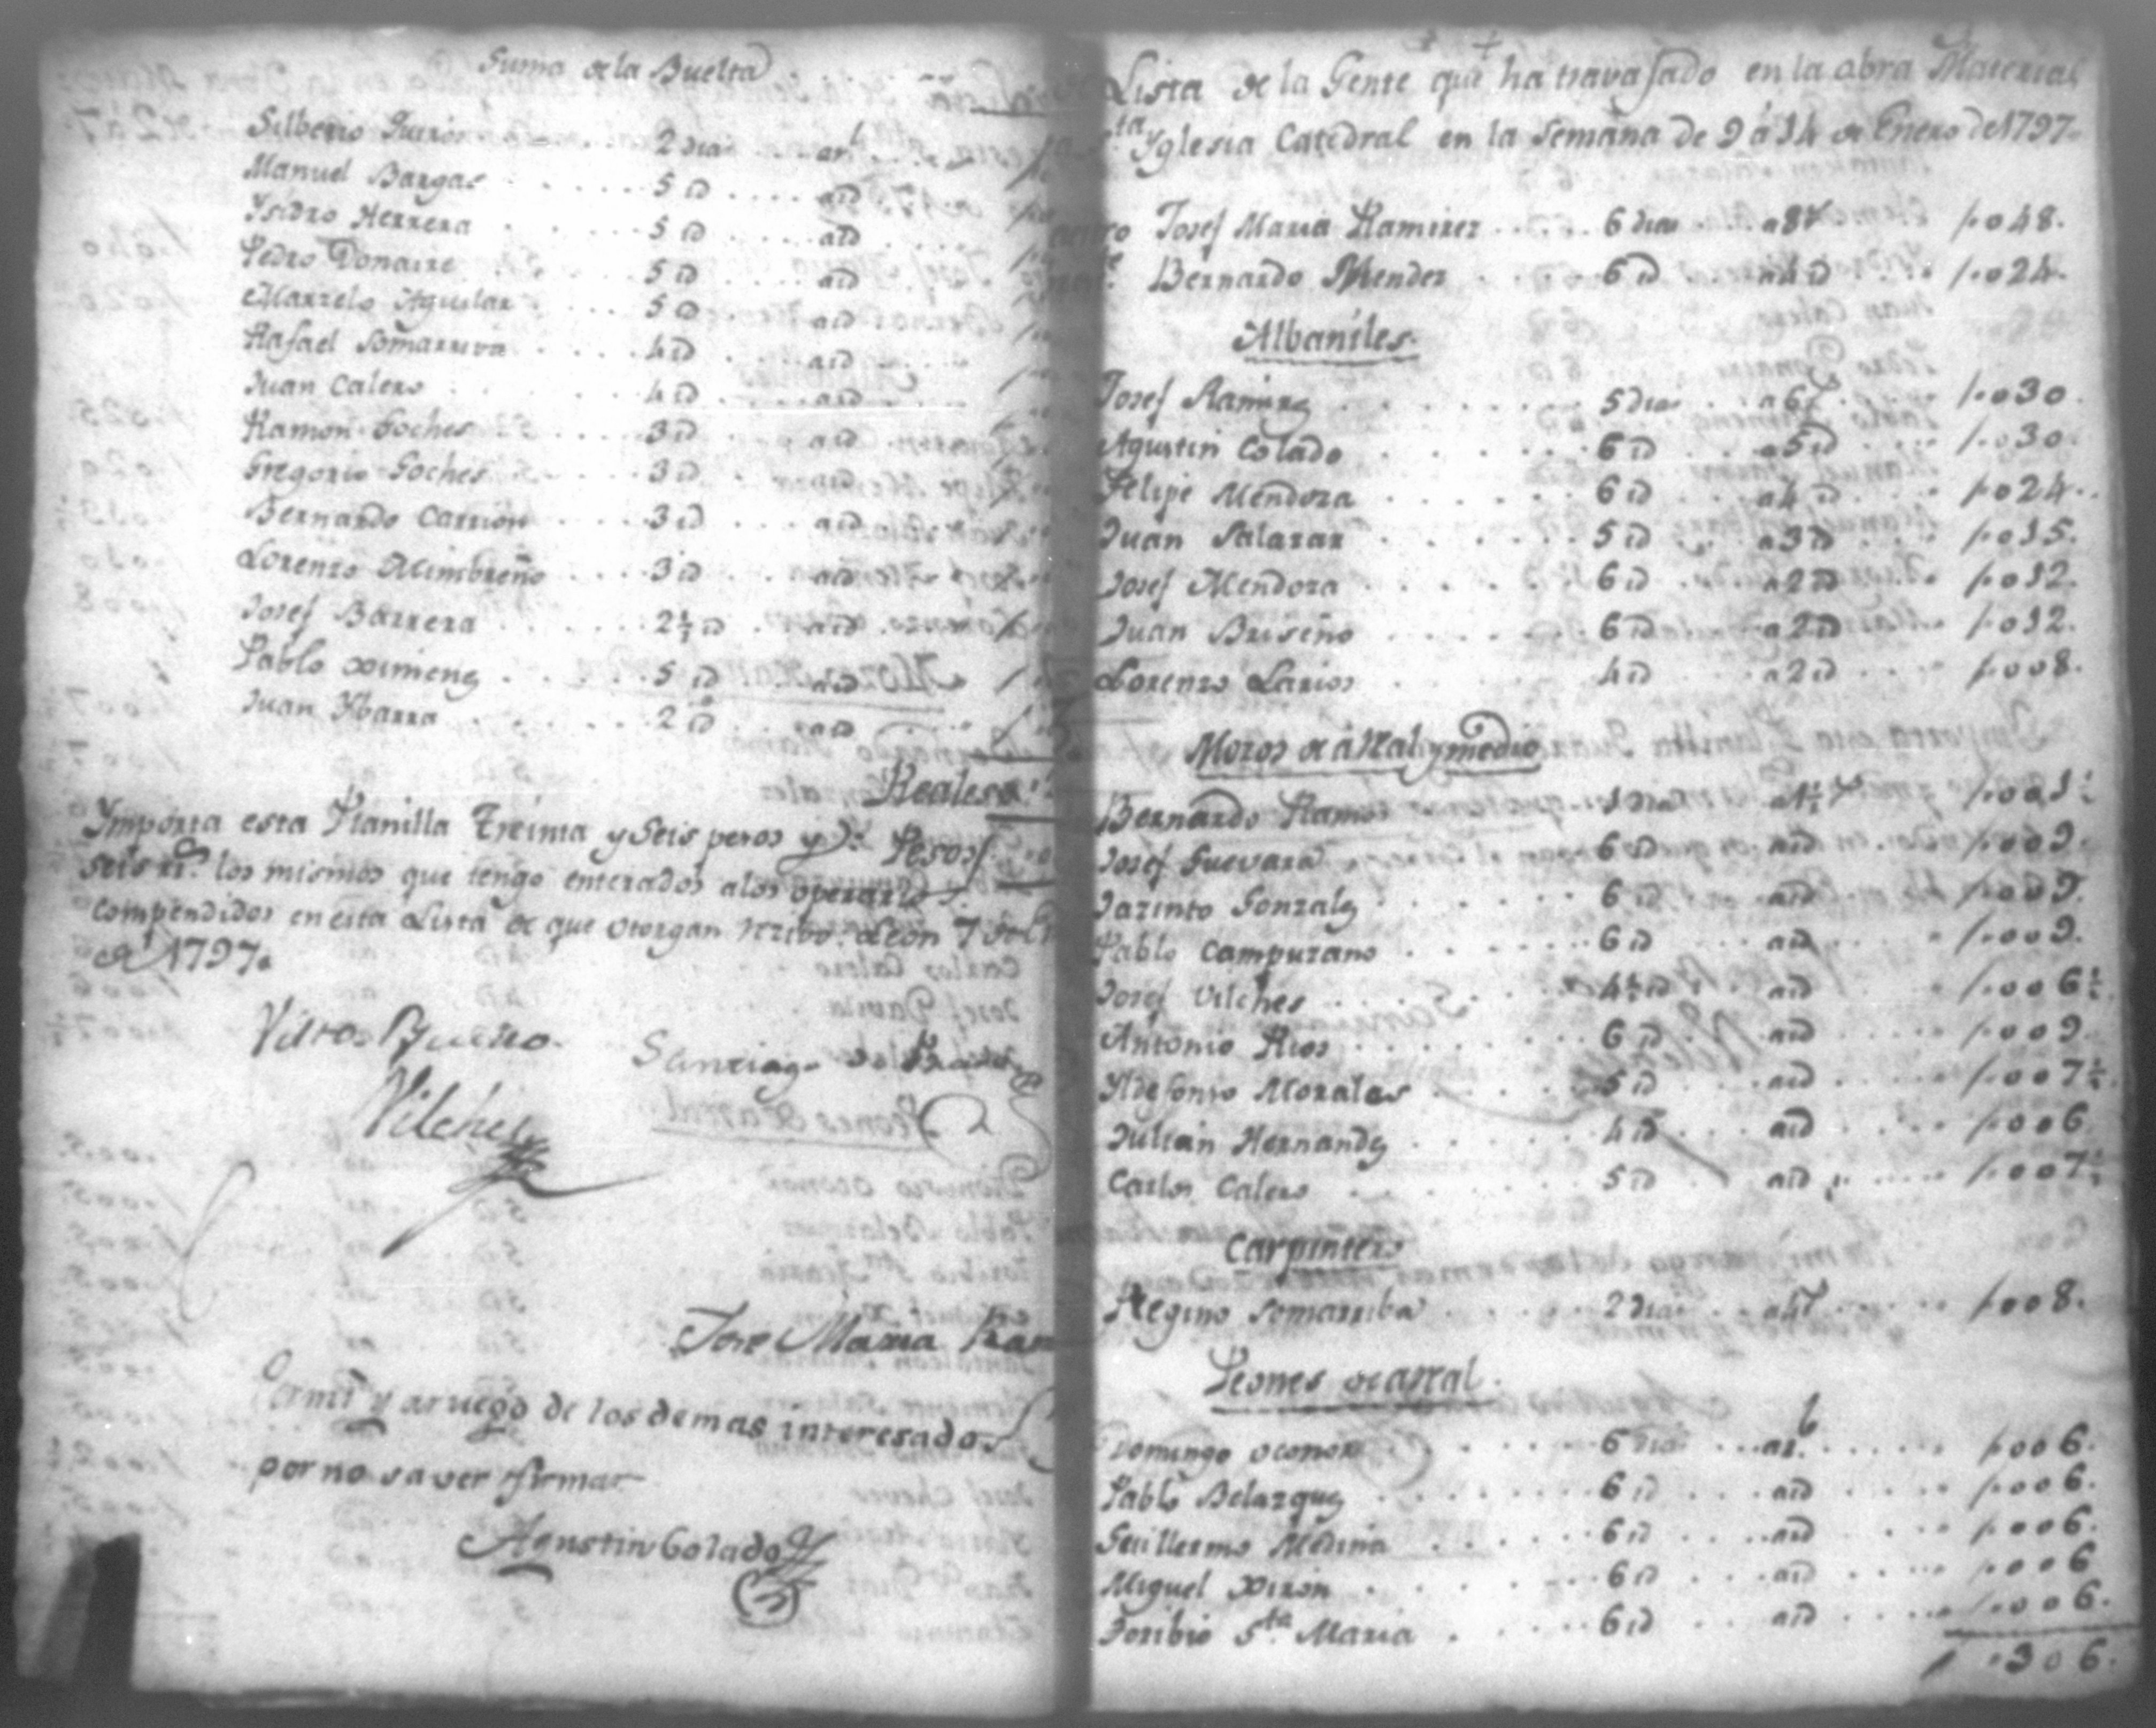 Suma de la Buelta
Silberio 2 dias a rl
Manuel Bargas 5 id a id
Ysidro Herrera 5 id a id
Pedro Donaire 5 id a id
Marzelo Aguilar 5 id a id
Rafael Somarriva 4 id a id
Juan Calero 4 id a id
Ramon Goches 3 id a id
Gregorio Goches 3 id a id
Bernardo Carrion 3 id a id
Lorenzo Mimbreño 3 id a id
Josef Barrera 2½ id a id
Pablo Ximenez 5 id a id
Juan Ybarra 2 id a id
Reales
Ymporta esta Planilla Treinta y Seis pesos y Pesos
seis rs. los mismos que tengo enterados a los operarios
compendidos en esta Lista de que otorgan rezivo. Leon 7
de 1797.
Vtto. Bueno. Santiago de
Vilchez
Jose Maria
Por mi y a ruego de los demas interesados
por no saver firmar
Agustin Colado
Lista de la Gente que ha travajado en la obra Material
Sta Yglesia Catedral en la Semana de 9 á 14 de Enero de 1797
Josef Maria Ramirez 6 dias a 8 r 048.
Bernardo Mendez 6 id a 4 id 024.
Albañiles.
Josef Ramirez 5 dias a 6 r 030.
Agustin Colado 6 id a 5 id 030.
Felipe Mendoza 6 id a 4 id 024.
Juan Salazar 5 id a 3 id 015.
Josef Mendoza 6 id a 2 id 012.
Juan Briseño 6 id a 2 id 012.
Lorenzo Larios 4 id a 2 id 008.
Mozos de á Real y medio
Bernardo Ramos 1 dia a 1½ r 001½
Josef Guevara 6 id a id 009.
Jazinto Gonzalez 6 id a id 009.
Pablo Campuzano 6 id a id 009.
Josef Vilches 4½ id a id 006½
Antonio Rios 6 id a id 009.
Yldefonso Morales 5 id a id 007½
Julian Hernandez 4 id a id 006
Carlos Calero 5 id a id 007½
Carpintero
Regino Somarriba 2 dias a 4 r 008.
Peones de a Real.
Domingo Oconor 6 dias a rl. 006.
Pablo Belazquez 6 id a id 006.
Guillermo Medina 6 id a id 006.
Miguel Xiron 6 id a id 006
Toribio Sta. Maria 6 id a id 006.
306.